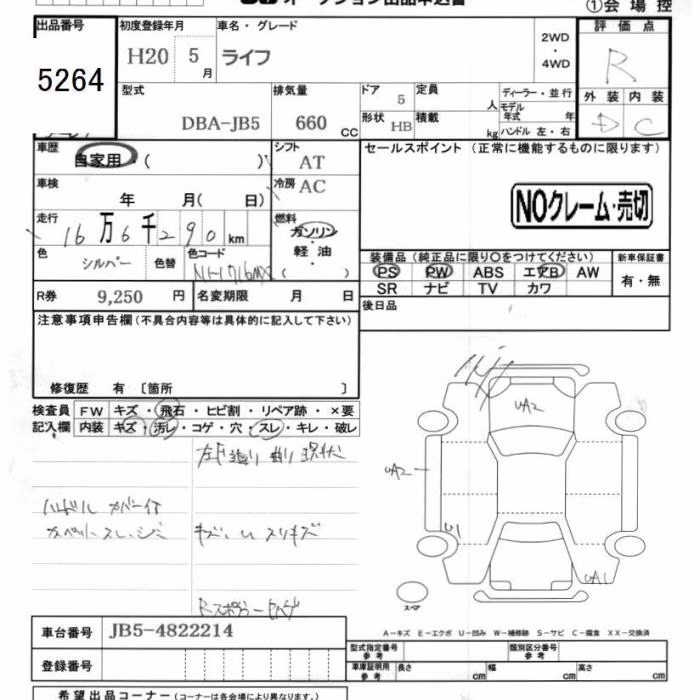 オークション出品申込書
①会場控
出品番号
初度登録年月
車名・グレード
2WD
・
4WD
評価点
5264
H20 5月
ライフ
R
型式
排気量
ドア
定員
ディーラー・並行
外装 内装
DBA-JB5
660 CC
5
人
モデル年式 年
D C
形状 HB
積載 kg
ハンドル 左・右
車歴
自家用・( )
シフト AT
セールスポイント (正常に機能するものに限ります)
車検
年 月( 日)
冷房 AC
NOクレーム・売切
走行
16万6千290km
燃料
ガソリン・
軽油・
( )
色 シルバー
色替
色コード
装備品 (純正品に限り○をつけてください)
新車保証書
PS PW ABS エアB AW
有・無
SR ナビ TV カワ
R券 9,250 円
名変期限 月 日
後日品
注意事項申告欄 (不具合内容等は具体的に記入して下さい)
修復歴 有 〔箇所 〕
検査員 FW キズ・飛石・ヒビ割・リペア跡・×要
記入欄 内装 キズ・汚レ・コゲ・穴・スレ・キレ・破レ
ハンドル カバー付
UA2
UA2
U1
UA1
スペア
車台番号 JB5-4822214
A-キズ E-エクボ U-凹み W-補修跡 S-サビ C-腐食 XX-交換済
型式指定番号
参考
類別区分番号
参考
登録番号
車庫証明用
参考
長さ cm
幅 cm
高さ cm
希望出品コーナー (コーナーは各会場により異なります。)